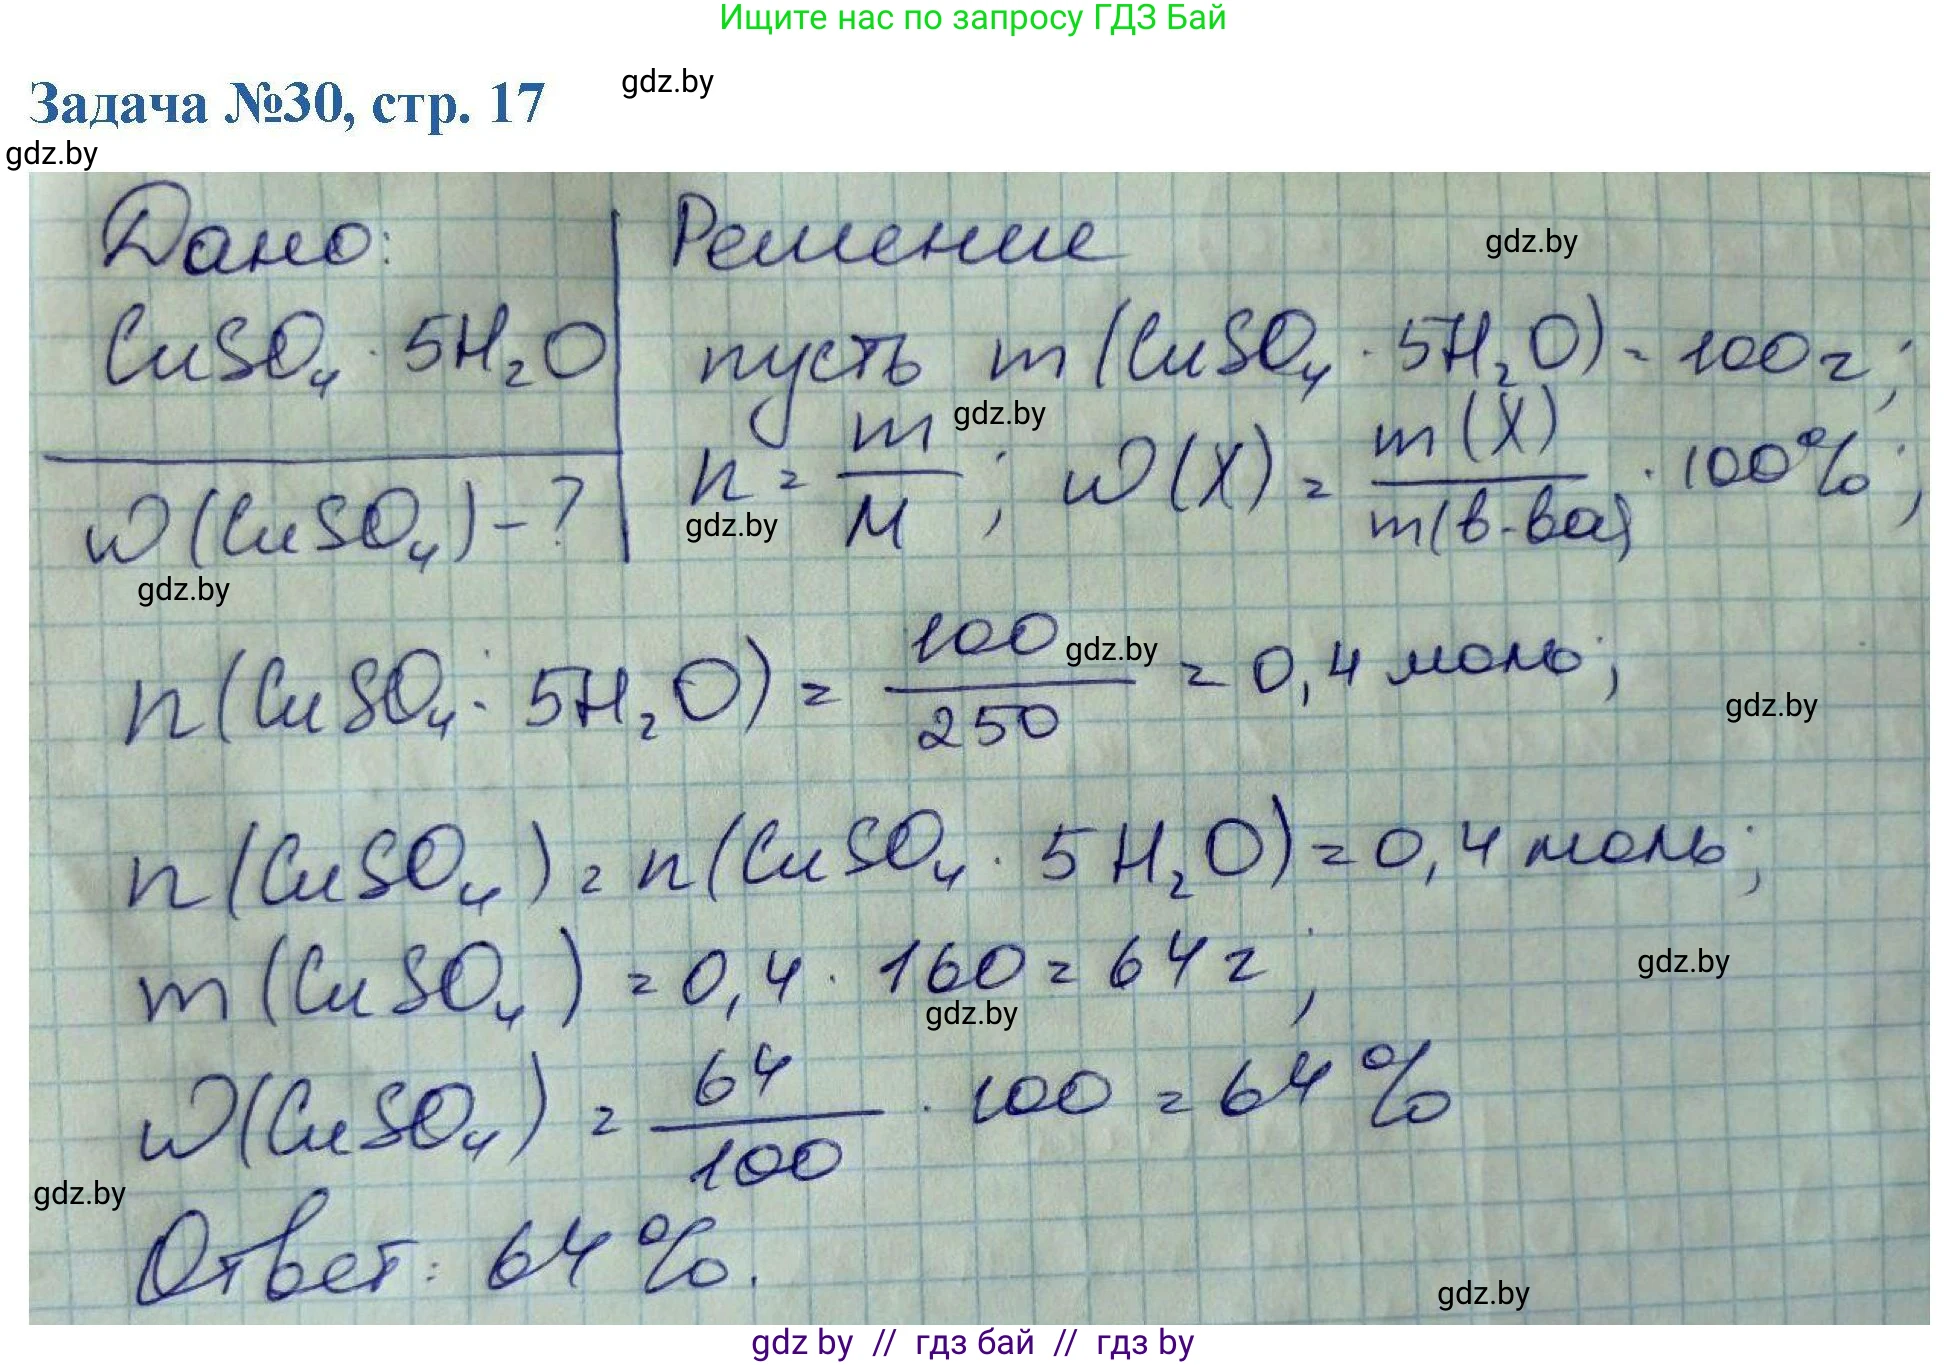 Ищите нас по запросу ГДЗ Бай
Задача №30, стр. 17
gdz.by
gdz.by
Дано:
CuSO₄ · 5H₂O
w(CuSO₄) - ?
gdz.by
Решение
gdz.by
пусть m(CuSO₄ · 5H₂O) = 100 г;
gdz.by
n = m/M; w(X) = m(X)/m(в-ва) · 100%;
gdz.by
n(CuSO₄ · 5H₂O) = 100/250 = 0,4 моль;
gdz.by
gdz.by
n(CuSO₄) = n(CuSO₄ · 5H₂O) = 0,4 моль;
m(CuSO₄) = 0,4 · 160 = 64 г;
gdz.by
gdz.by
w(CuSO₄) = 64/100 · 100 = 64%
gdz.by
Ответ: 64%.
gdz.by
gdz by // гдз бай // гдз by